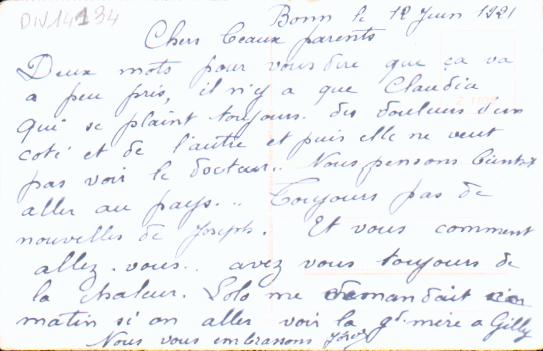 DIV14134
Bonn le 12 Juin 1921
Chers beaux parents
Deux mots pour vous dire que ça va
a peu pris, il n'y a que Claudia
qui se plaint toujours des douleurs d'un
coté et de l'autre et puis elle ne veut
pas voir le docteur.. Nous pensons bientot
aller au pays... Toujours pas de
nouvelles de Joseph. Et vous comment
allez-vous.. avez vous toujours de
la chaleur. Lolo me demandait ce
matin si on aller voir la gd mère a Gilly
Nous vous embrassons